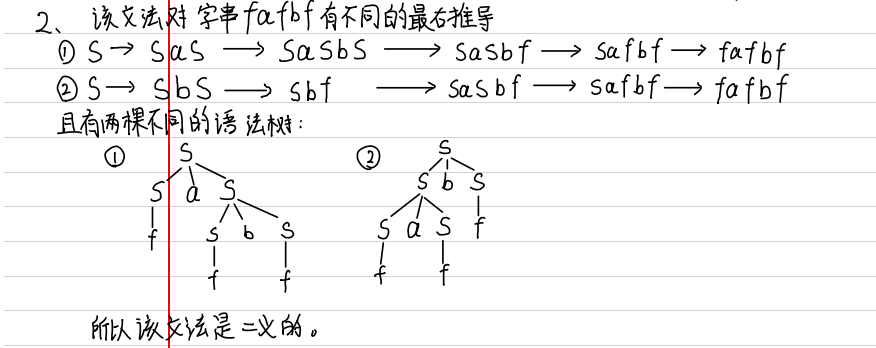 2、该文法对字串fafbf有不同的最右推导
① S → SaS → SaSbS → SaSbf → Safbf → fafbf
② S → SbS → Sbf → SaSbf → Safbf → fafbf
且有两棵不同的语法树：
① S ② S
S a S S b S
f S b S S a S f
f f f f
所以该文法是二义的。